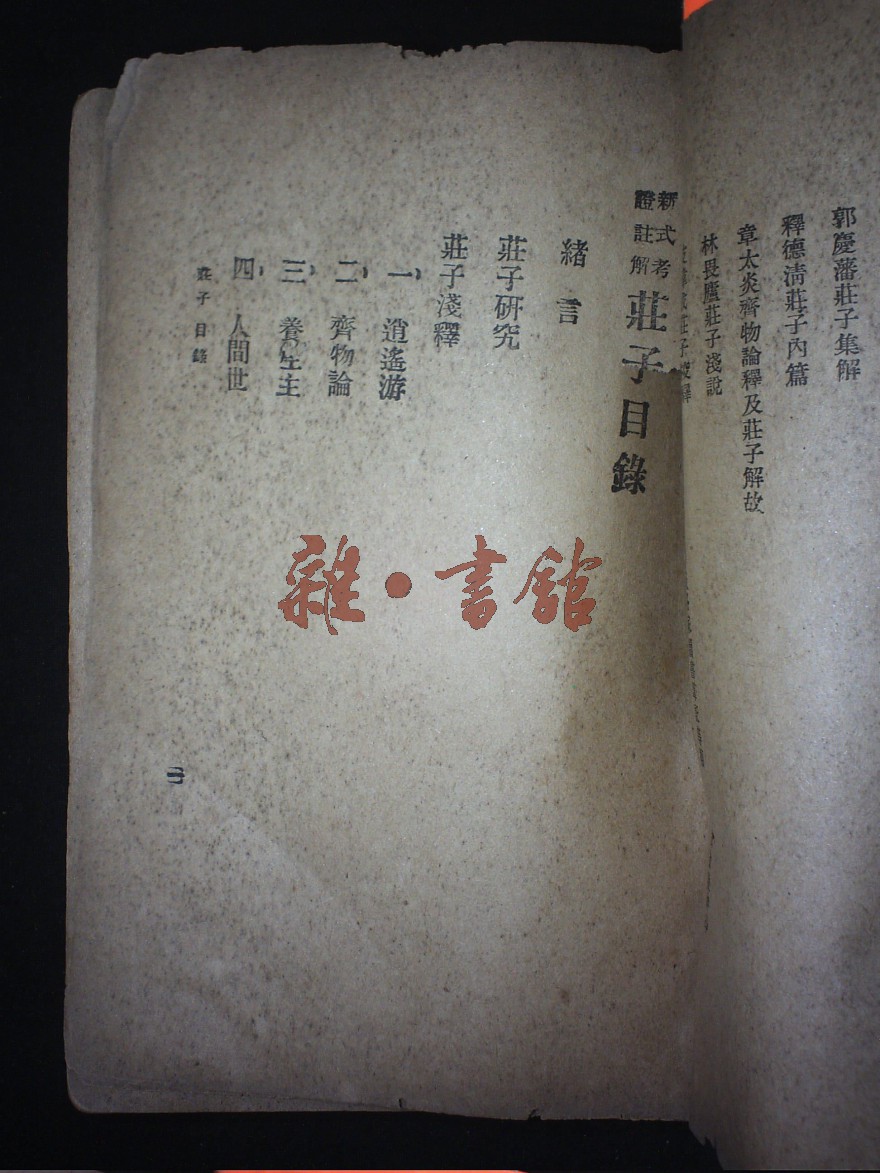 郭慶藩莊子集解
釋德清莊子內篇
章太炎齊物論釋及莊子解故
林畏廬莊子淺說
新式考
證註解
莊子目錄
緒言
莊子研究
莊子淺釋
一 逍遙游
二 齊物論
三 養生主
四 人間世
莊子目錄
雜•書館